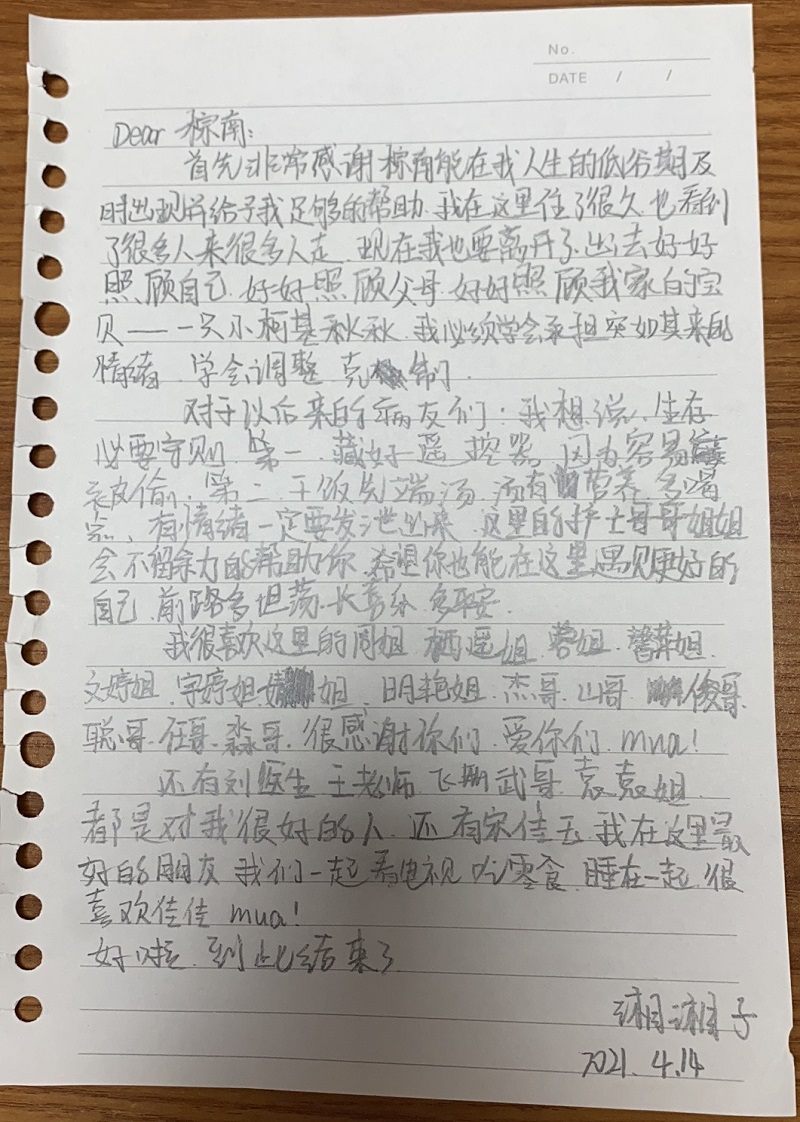 No.
DATE / /
Dear 棕南:
首先非常感谢棕南能在我人生的低谷期及
时出现并给予我足够的帮助.我在这里住了很久.也看到
了很多人来很多人走.现在我也要离开了.出去好好
照顾自己.好好照顾父母.好好照顾我家的宝
贝——一只小柯基秋秋.我必须学会承担突如其来的
情绪.学会调整.克制.
对于以后来的病友们:我想说.生存
必要守则.第一.藏好遥控器.因为容易
被偷.第二.干饭先端汤.汤有营养.多喝
点.有情绪一定要发泄出来.这里的护士哥哥姐姐
会不留余力的帮助你.希望你也能在这里遇见更好的
自己.前路多坦荡.长喜乐.多平安.
我很喜欢这里的周姐.栖遥姐.蓉姐.馨苹姐.
文婷姐.宇婷姐.姐.明艳姐.杰哥.山哥.俊哥.
聪哥.任哥.淼哥.很感谢你们.爱你们.mua!
还有刘医生.王老师.飞 武哥.袁袁姐.
都是对我很好的人.还有宋佳玉.我在这里最
好的朋友.我们一起看电视.吃零食.睡在一起.很
喜欢佳佳 mua!
好啦.到此结束了.
子
2021.4.14